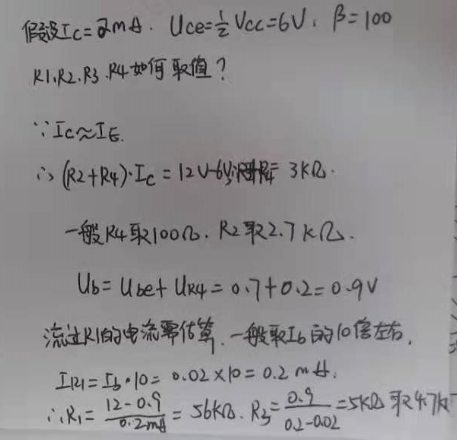 假设Ic=2mA. Uce=½Vcc=6V, β=100
R1.R2.R3.R4如何取值?
∵Ic≈IE.
∴(R2+R4)·Ic=12V-6V, = 3KΩ.
一般R4取100Ω. R2取2.7KΩ.
Ub=Ube+UR4=0.7+0.2=0.9V
流过R1的电流需估算.一般取Ib的10倍左右,
IR1=Ib·10=0.02×10=0.2mA.
∴R1=12-0.9/0.2mA=56KΩ. R3=0.9/0.2-0.02=5KΩ取4.7K